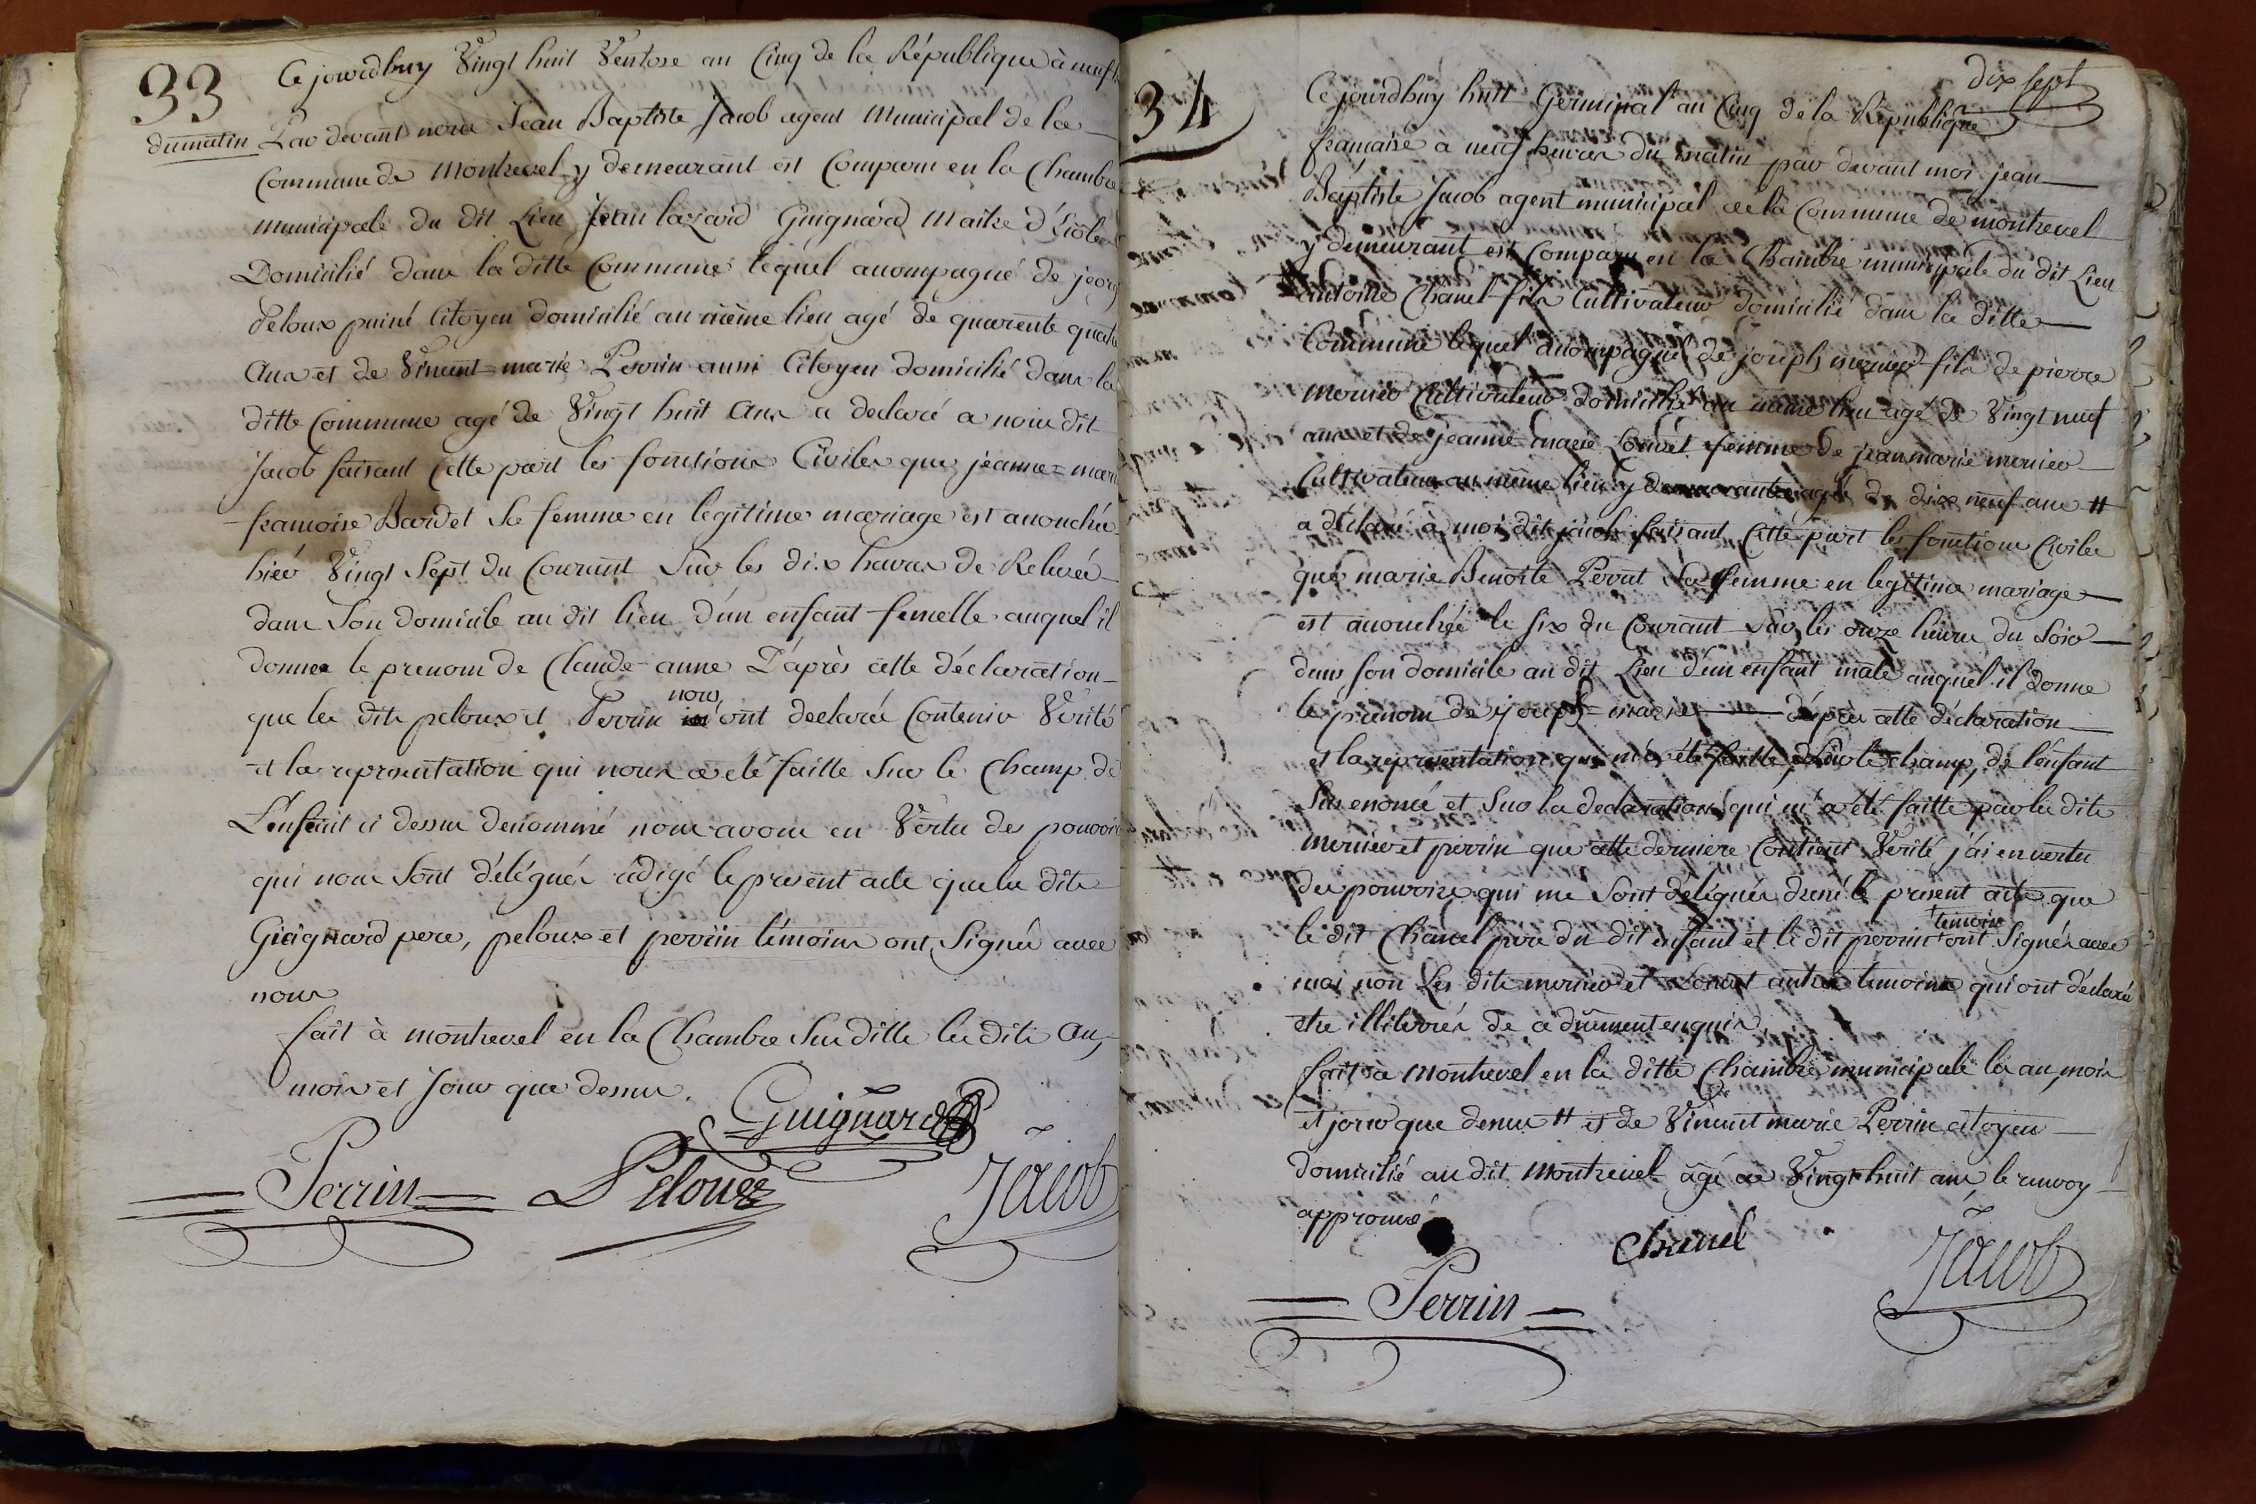 33
Ce jourdhuy Vingt huit Ventose an Cinq de la République à neuf h
du matin Par devant nous Jean Baptiste Jacob agent Municipal de la
Commune de Montrevel y demeurant est Comparu en la Chambre
Municipale du dit Lieu Jean lazard Guignard Maitre d'Ecole
Domicilié dans la ditte Commune lequel accompagné de
Peloux puiné Citoyen domicilié au même lieu agé de quarente quatre
Ans et de Vincent=marie Perrin aussi Citoyen domicilié dans la
ditte Commune agé de Vingt huit Ans a declaré a nous dit
Jacob faisant Cette part les fonctions Civiles que jeanne=marie
francoise Bardet Sa femme en legitime mariage est accouchée
hier Vingt Sept du Courant Sur les dix heures de Relevée
dans Son domicile au dit lieu d'un enfant femelle auquel il
donne le prenom de Claude-anne D'après cette déclaration
que les dits peloux et Perrin nous ont declaré Contenir Vérité
et la representation qui nous a eté faitte Sur le Champ de
L'enfant ci dessus denommé nous avons en Vertu des pouvoirs
qui nous Sont délégués rédigé le present acte que les dits
Guignard pere, peloux et perrin témoins ont Signés avec
nous
fait à montrevel en la Chambre Sus ditte les dits An,
mois et Jour que dessus.
Guignard
Perrin Peloux Jacob
dix sept
34
Ce jourdhuy huit Germinal an Cinq de la République
francaise a neuf heures du matin par devant moi jean
Baptiste Jacob agent municipal de la Commune de montrevel
y demeurant est Comparu en la Chambre municipale du dit Lieu
antoine Chanel fils Cultivateur domicilié dans la ditte
Commune lequel accompagné de joseph mernier fils de pierre
mernier Cultivateur domicilié au même lieu agé de Vingt neuf
ans et de jeanne marie Louvet femme de jean marie mernier
Cultivateur au même lieu y demeurante agée de dix neuf ans #
a déclaré à moi dit jacob faisant Cette part les fonctions Civiles
que marie Benoite Perrut Sa femme en legitime mariage
est accouchée le six du Courant Sur les onze heures du Soir
dans son domicile au dit Lieu d'un enfant male auquel il donne
le prenom de joseph=marie d'après cette déclaration
et la representation qui m'a été faitte, Sur le champ, de l'enfant
Sus enoncé et Sur la declaration qui m'a été faitte par les dits
mernier et perrin que cette derniere Contient Verité j'ai en vertu
des pouvoirs qui me Sont délégués dressé le present acte que
le dit Chanel pere du dit enfant et le dit perrin temoin ont Signés avec
moi non Les dits mernier et Louvet autres temoins qui ont déclaré
etre illiterrés De ce dûement enquis.
fait à Montrevel en la ditte Chambre municipale les an, mois
et jour que dessus # et de Vincent marie Perrin citoyen
domicilié au dit Montrevel agé de Vingt huit ans le renvoy
approuvé
Chanel
Perrin Jacob